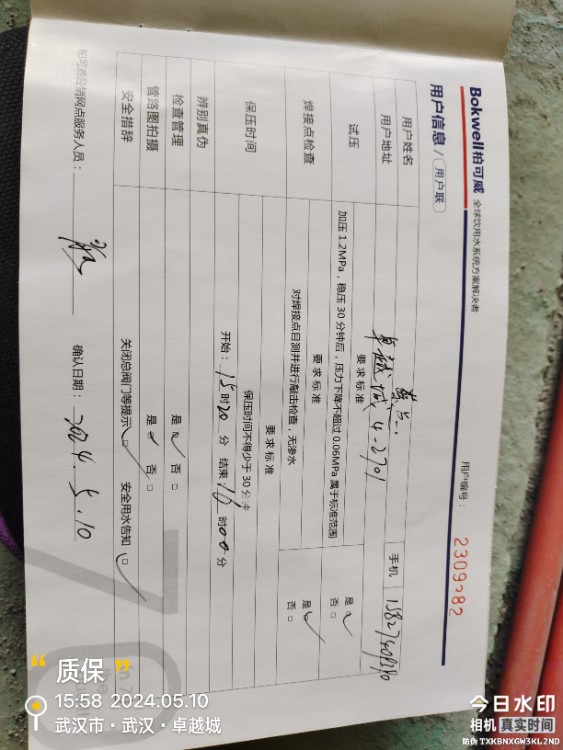 Bokwell柏可威 全球饮用水系统方案解决者
用户信息 / 用户联
用户编号： 2309282
用户姓名
手机
用户地址 卓越城 4-2701
试压
要求标准
加压 1.2MPa，稳压 30 分钟后，压力下降不超过 0.06MPa 属于标准范围
是 ✓
否 □
焊接点检查
要求标准
对焊接点目测并进行敲击检查，无渗水
是 ✓
否 □
保压时间
要求标准
保压时间不得少于 30 分钟
开始：15 时 20 分 结束：16 时 00 分
辨别真伪
检查管理
是 ✓ 否 □
管路图拍摄
是 ✓ 否 □
安全措辞
关闭总阀门等提示 □ ✓ 安全用水告知 □ ✓
柏可威营销网点服务人员：
确认日期：2024.5.10
“质保”
15:58 2024.05.10
武汉市·武汉·卓越城
今日水印
相机 真实时间
防伪 TXKBNXGW3KL2ND